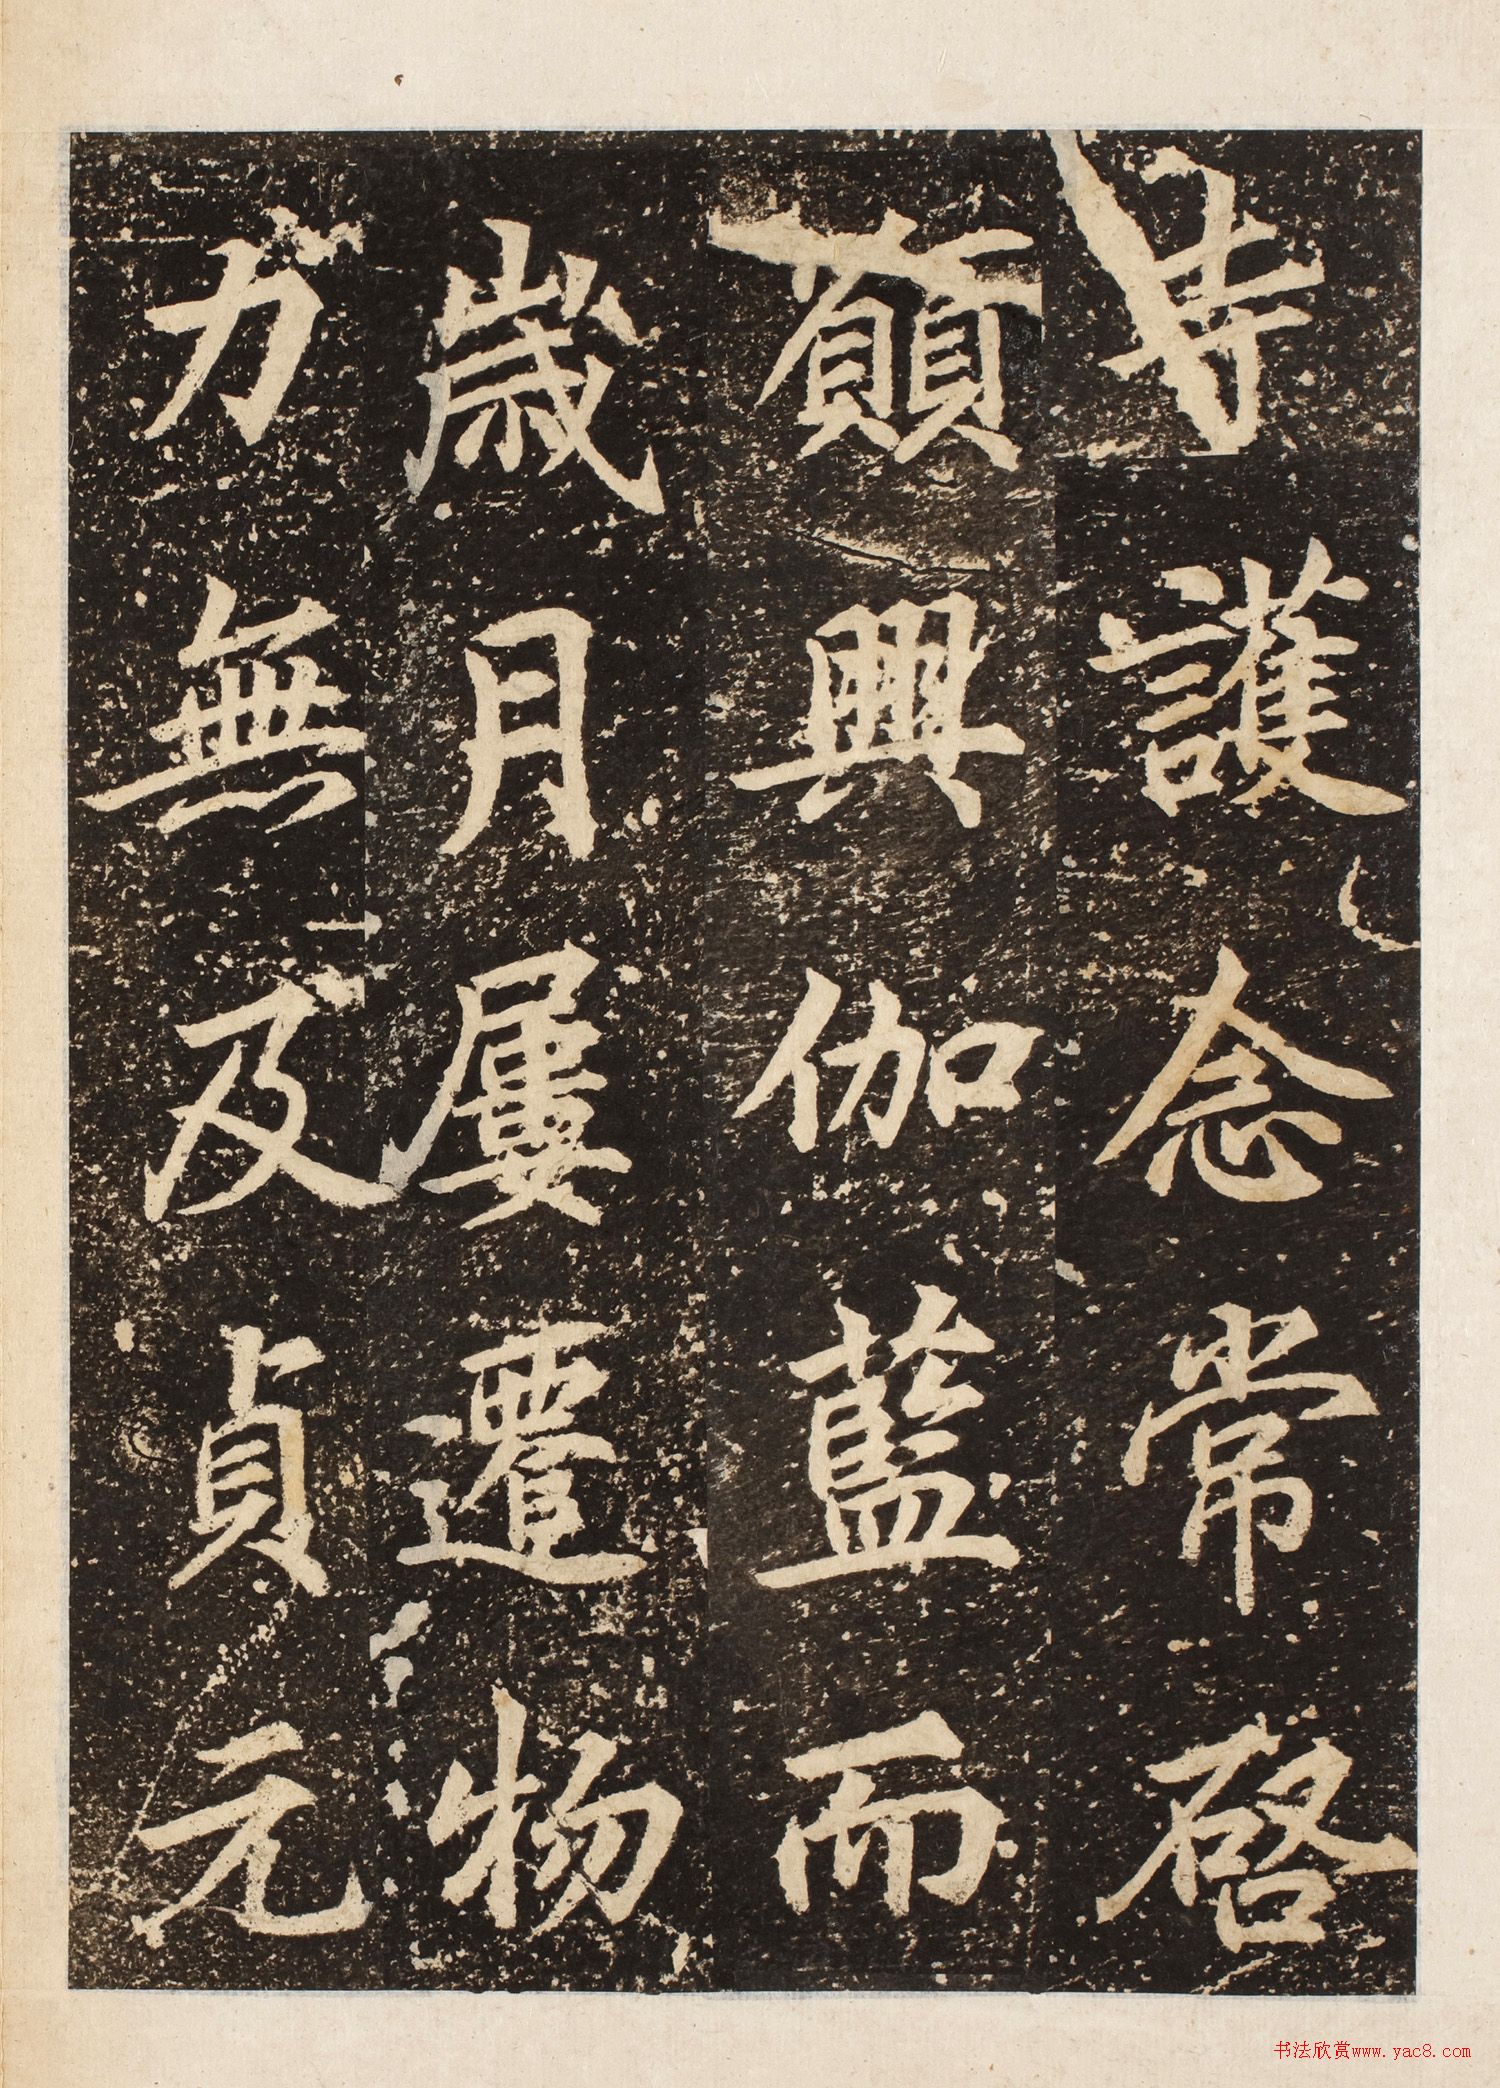 寺護念常啓
願興伽藍而
歲月屢遷物
力無及貞元
书法欣赏www.yac8.com